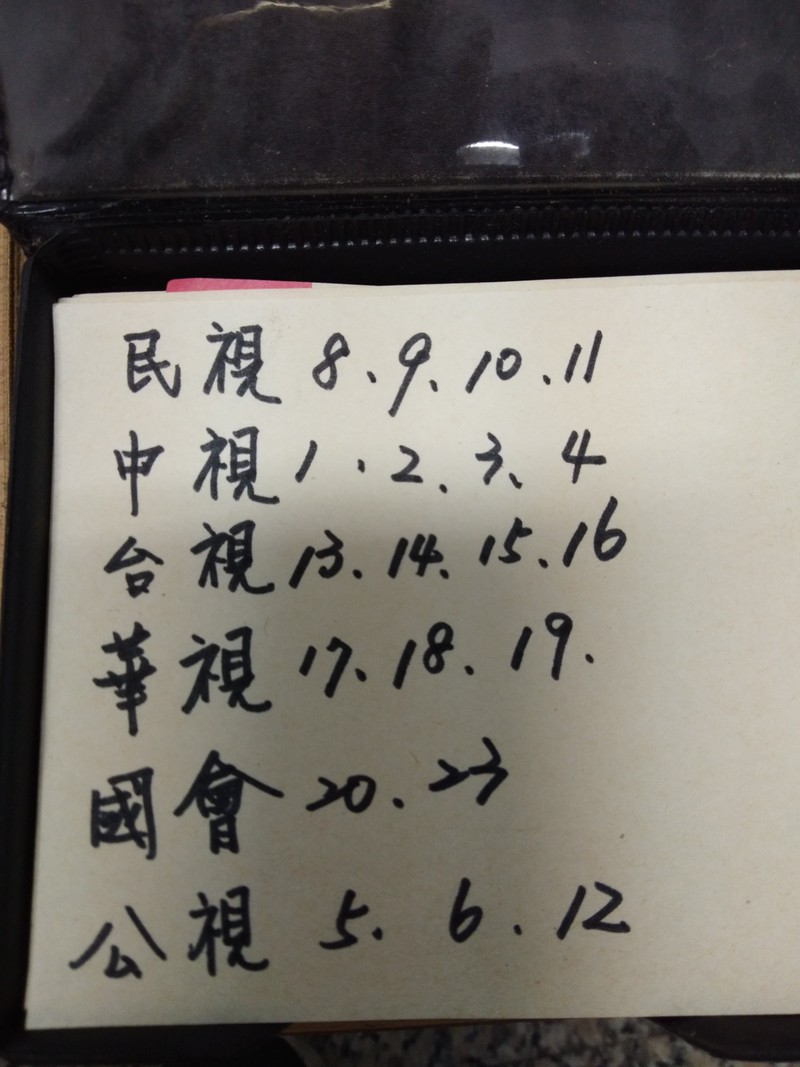 民視 8、9、10、11
中視 1、2、3、4
台視 13、14、15、16
華視 17、18、19.
國會 20、23
公視 5、6、12